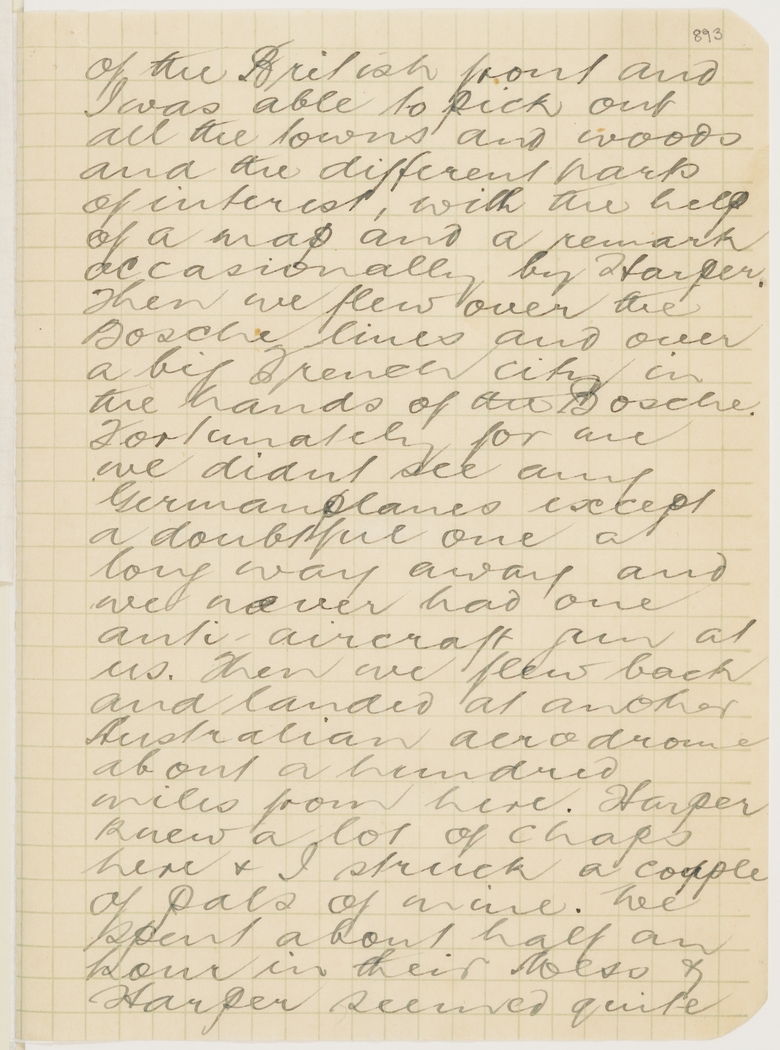 893
of the British front and
I was able to pick out
all the towns and woods
and the different parts
of interest, with the help
of a map and a remark
occasionally by Harper.
Then we flew over the
Bosche lines and over
a big French city in
the hands of the Bosche.
Fortunately for me
we didnt see any
German planes except
a doubtful one a
long way away and
we never had one
anti-aircraft gun at
us. Then we flew back
and landed at another
Australian aerodrome
about a hundred
miles from here. Harper
knew a lot of chaps
here & I struck a couple
of pals of mine. We
spent about half an
hour in their Mess &
Harper seemed quite